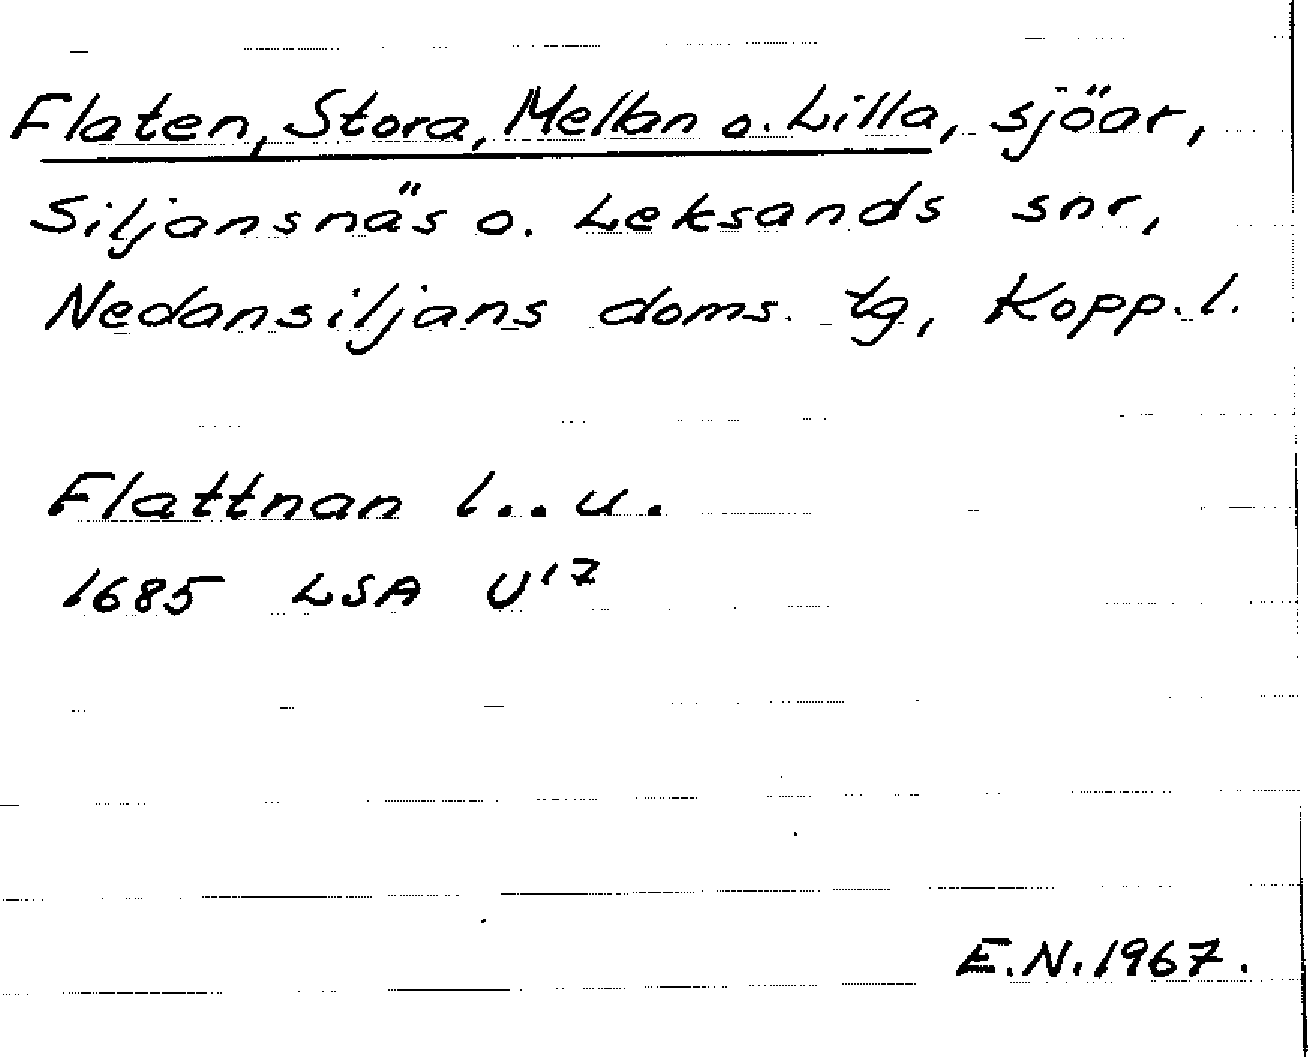 Flaten, Stora, Mellan o. Lilla, sjöar,
Siljansnäs o. Leksands snr,
Nedansiljans doms. tg, Kopp. l.
Flattnan l..u.
1685 LSA U¹⁷
E.N.1967.